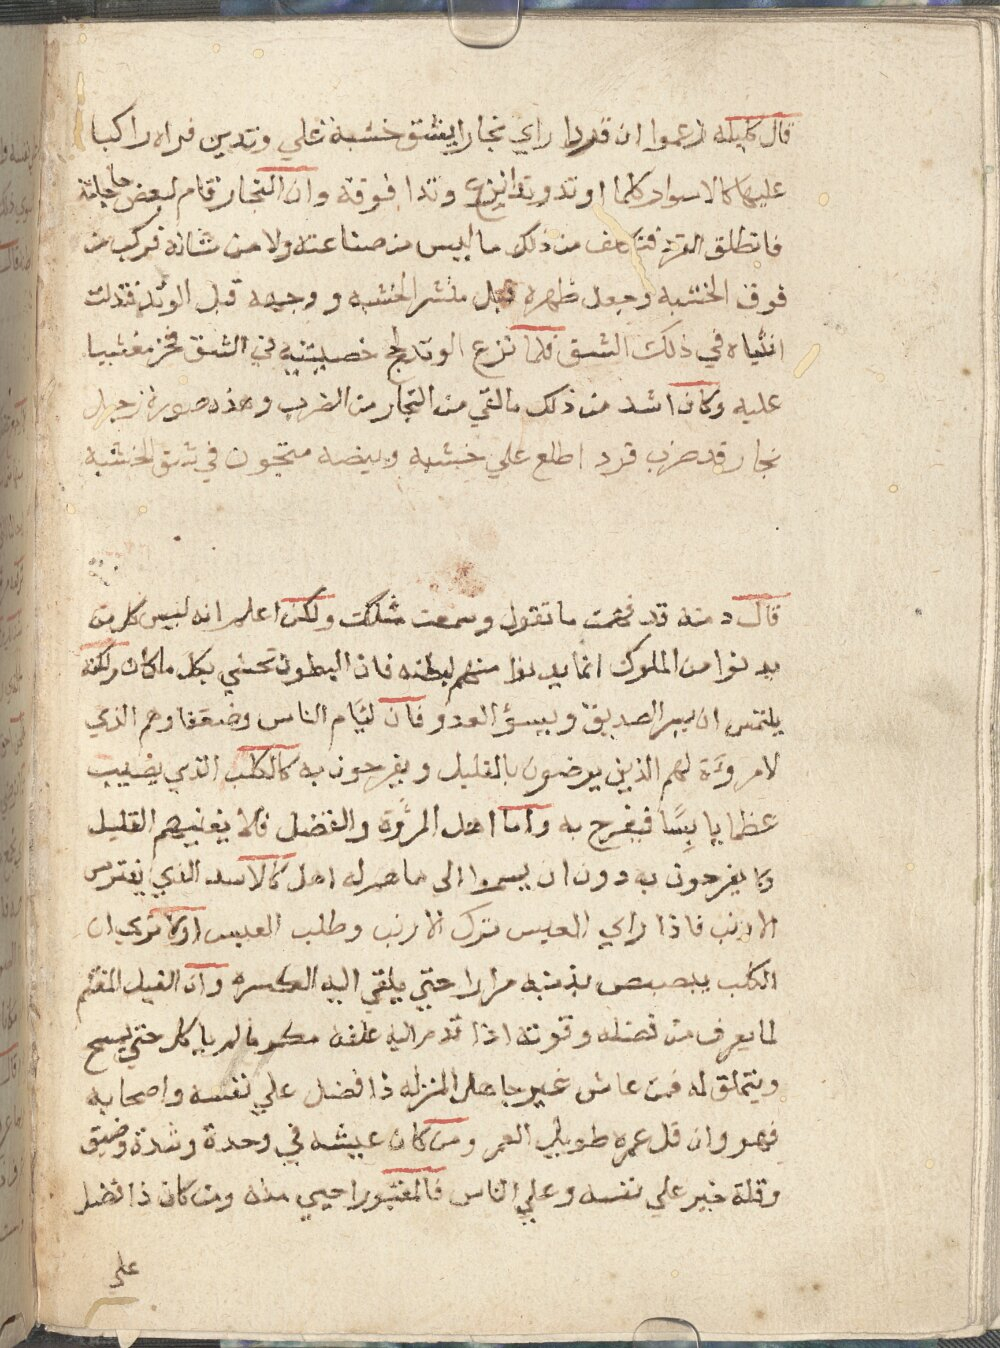 قال كليله زعموا ان قردا راي نجارا يشق خشبة علي وتدين فراه راكبا
عليها كالاسوار كلما اوتد وتدا نزع وتدا فوقه وان النجار قام لبعض حاجاته
فانطلق القرد فتكلف من ذلك ما ليس من صناعته ولا من شانه فركب من
فوق الخشبه وجعل ظهره قبل منشر الخشبه ووجهه قبل الوتد فتدلت
انثياه في ذلك الشق فلما نزع الوتد لج خصيتيه في الشق فخر مغشيا
عليه وكان اشد من ذلك ما لقي من النجار من الضرب وهذه صورة رجل
نجار قد ضرب قرد اطلع علي خشبه وبيضه منجون في شق الخشبة
قال دمنه قد فهمت ما تقول وسمعت مثلك ولكن اعلم انه ليس كل من
يدنوا من الملوك انما يدنوا منهم لبطنه فان البطون تحشي بكل ما كان ولكنه
يلتمس ان يسر الصديق ويسؤ العدو فان ليام الناس وضعفاوهم الذي
لا مروءة لهم الذين يرضون بالقليل ويفرحون به كالكلب الذي يصيب
عظما يابسا فيفرح به واما اهل المروة والفضل فلا يغنيهم القليل
ولا يفرحون به دون ان يسموا الى ما هم له اهل كالاسد الذي يفترس
الارنب فاذا راي العيس ترك الارنب وطلب العيس اولا تري ان
الكلب يبصبص بذنبه مرارا حتي يلقي اليه الكسره وان الفيل المغتلم
لما يعرف من فضله وقوته اذا قدم اليه علفه مكرما لم ياكل حتي يمسح
ويتملق له فمن عاش غير جاهل المنزله ذا فضل علي نفسه واصحابه
فهو وان قل عمره طويل العمر ومن كان عيشه في وحدة وشدة وضيق
وقلة خير علي نفسه وعلي الناس فالمقبور احيي منه ومن كان ذا فضل
علي